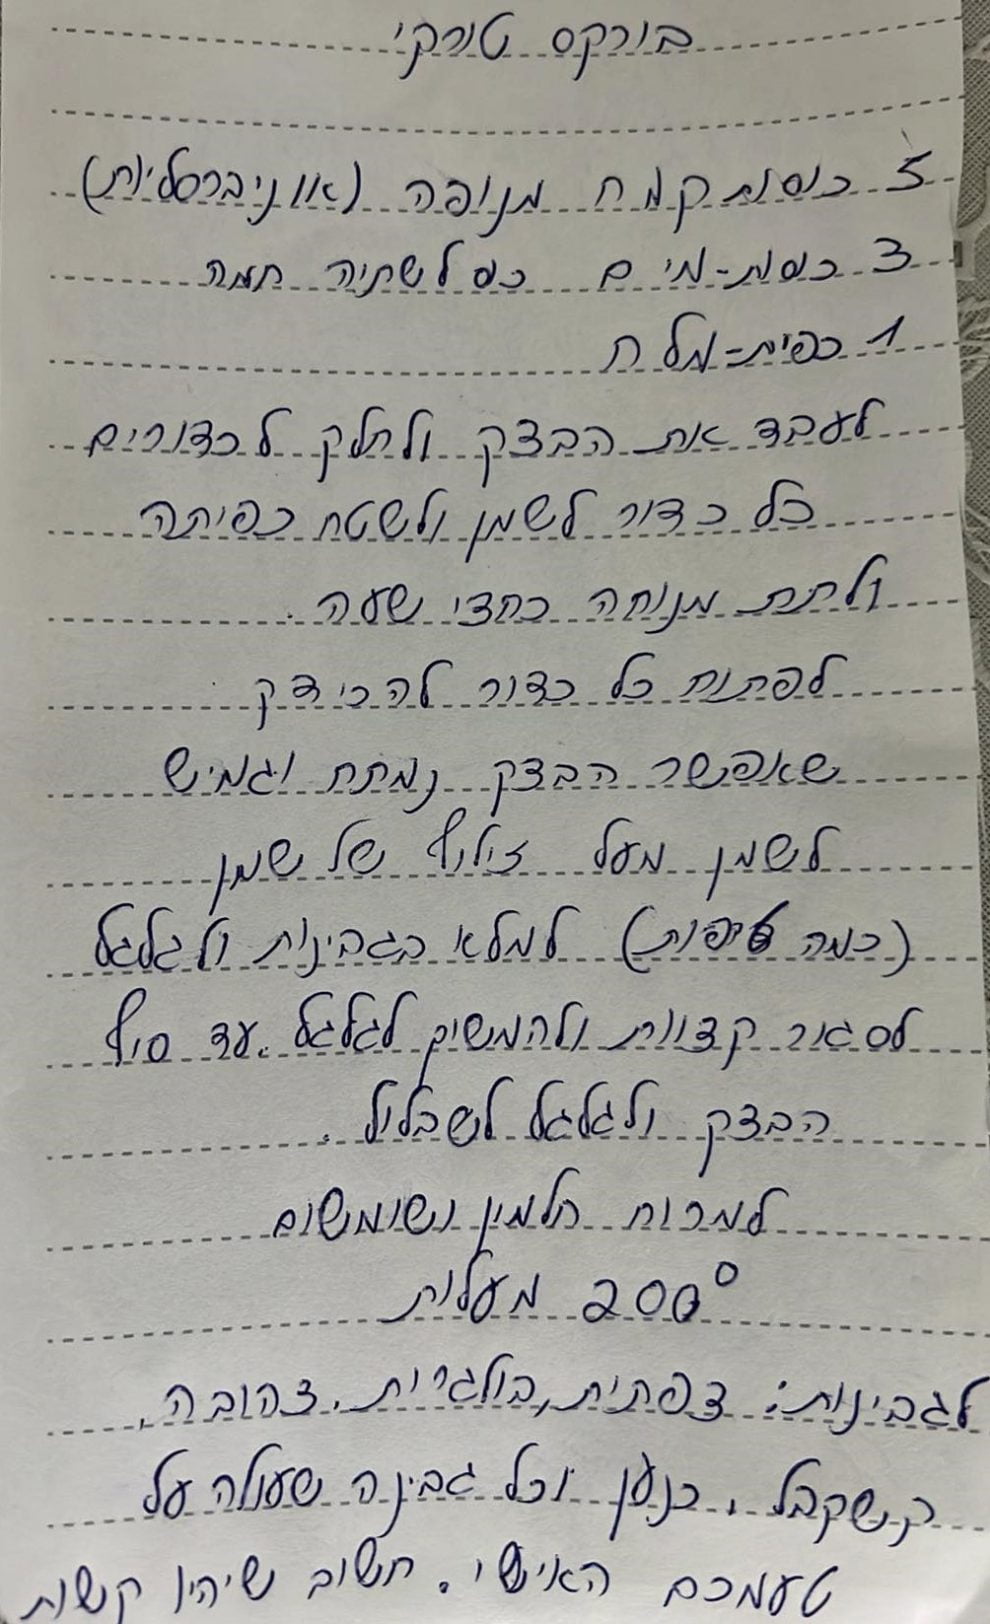 בורקס טורקי
5 כוסות קמח מנופה (אוניברסליות)
3 כוסות-מים כוס לשתיה חמה
1 כפית-מלח
לעבד את הבצק ולחלק לכדורים
כל כדור לשמן ולשטח כפיתה
ולתת מנוחה כחצי שעה.
לפתוח כל כדור להכי דק
שאפשר הבצק נמתח וגמיש
לשמן מעל זילוף של שמן
(כמה טיפות) למלא בגבינות ולגלגל
לסגור קצוות ולהמשיך לגלגל עד סוף
הבצק ולגלגל לשבלול.
למרוח חלמון ושומשום
200° מעלות
לגבינות: צפתית, בולגרית, צהובה,
קשקבל, כנען וכל גבינה שעולה על
טעמכם האישי. חשוב שיהיו קשות